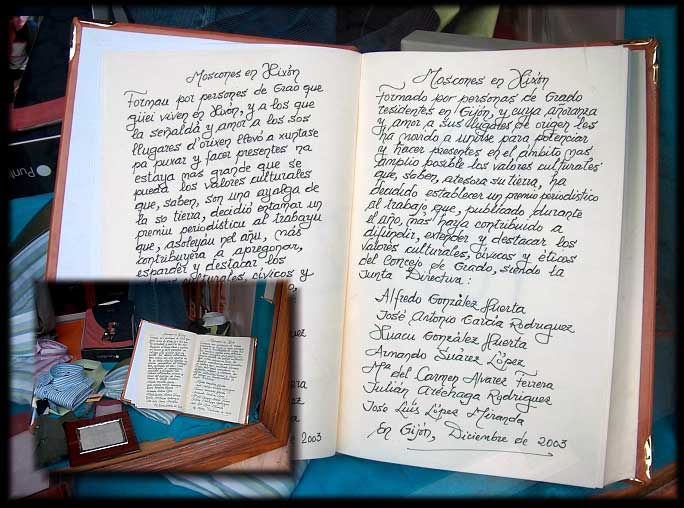 Moscones en Xixón
Formau por persones de Grao que
güei viven en Xixón, y a los que
la señaldá y amor a los sos
llugares d'orixen llevó a xuntase
pa puxar y facer presentes na
estaya mas grande que se
pueda los valores culturales
que, saben, son una ayalga de
la so tierra, decidió entamar un
premiu periodísticu al trabayu
que, asoleyáu nel añu, más
contribuyera a apregonar,
esparder y destacar los
culturales, cívicos y
2003
Moscones en Xixón
Formado por personas de Grado
residentes en Gijón, y cuya añoranza
y amor a sus llugares de origen les
ha movido a unirse para potenciar
y hacer presentes en el ámbito mas
amplio posible los valores culturales
que, saben, atesora su tierra, ha
decidido establecer un premio periodístico
al trabajo que, publicado durante
el año, más haya contribuido a
difundir, extender y destacar los
valores culturales, cívicos y éticos
del Concejo de Grado, siendo la
Junta Directiva:
Alfredo González Huerta
José Antonio García Rodríguez
Xuacu González Huerta
Armando Suárez López
Mª del Carmen Alvarez Ferrera
Julián Aréchaga Rodríguez
Jose Luis López Miranda
En Gijón, Diciembre de 2003
Punto